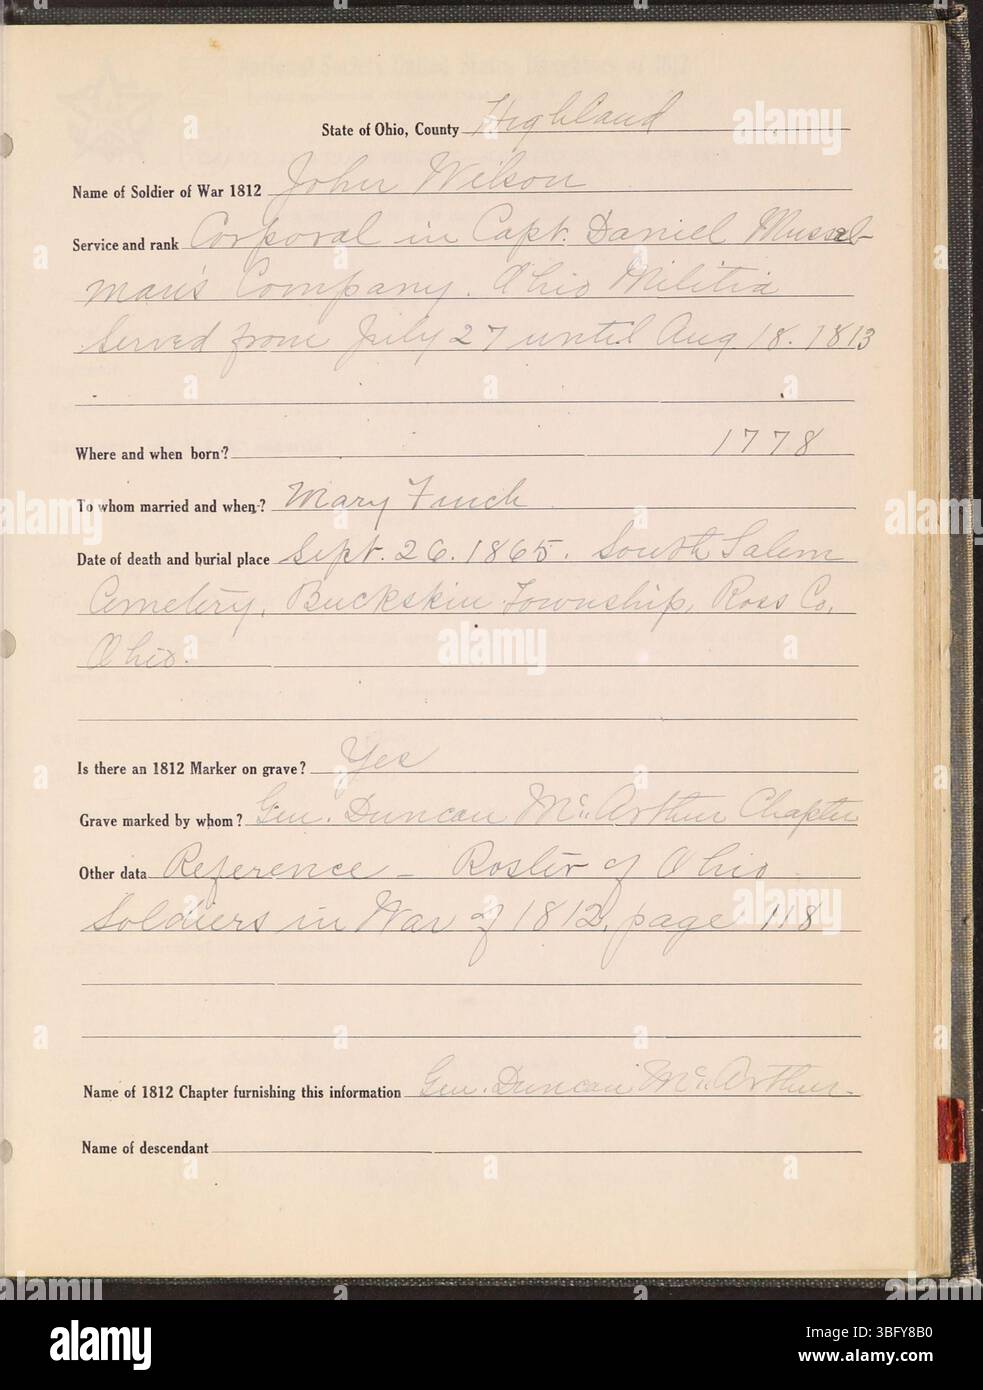 State of Ohio, County Highland
Name of Soldier of War 1812 John Wilson
Service and rank Corporal in Capt. Daniel Mussel-
man's Company. Ohio Militia
Served from July 27 until Aug 18. 1813
Where and when born? 1778
To whom married and when? Mary Finch
Date of death and burial place Sept. 26. 1865. South Salem
Cemetery, Buckskin Township, Ross Co,
Ohio.
Is there an 1812 Marker on grave? Yes
Grave marked by whom? Gen. Duncan McArthur Chapter
Other data Reference - Roster of Ohio
Soldiers in War of 1812, page 118
Name of 1812 Chapter furnishing this information Gen. Duncan McArthur.
Name of descendant
alamy
Image ID: 3BFY8B0
www.alamy.com